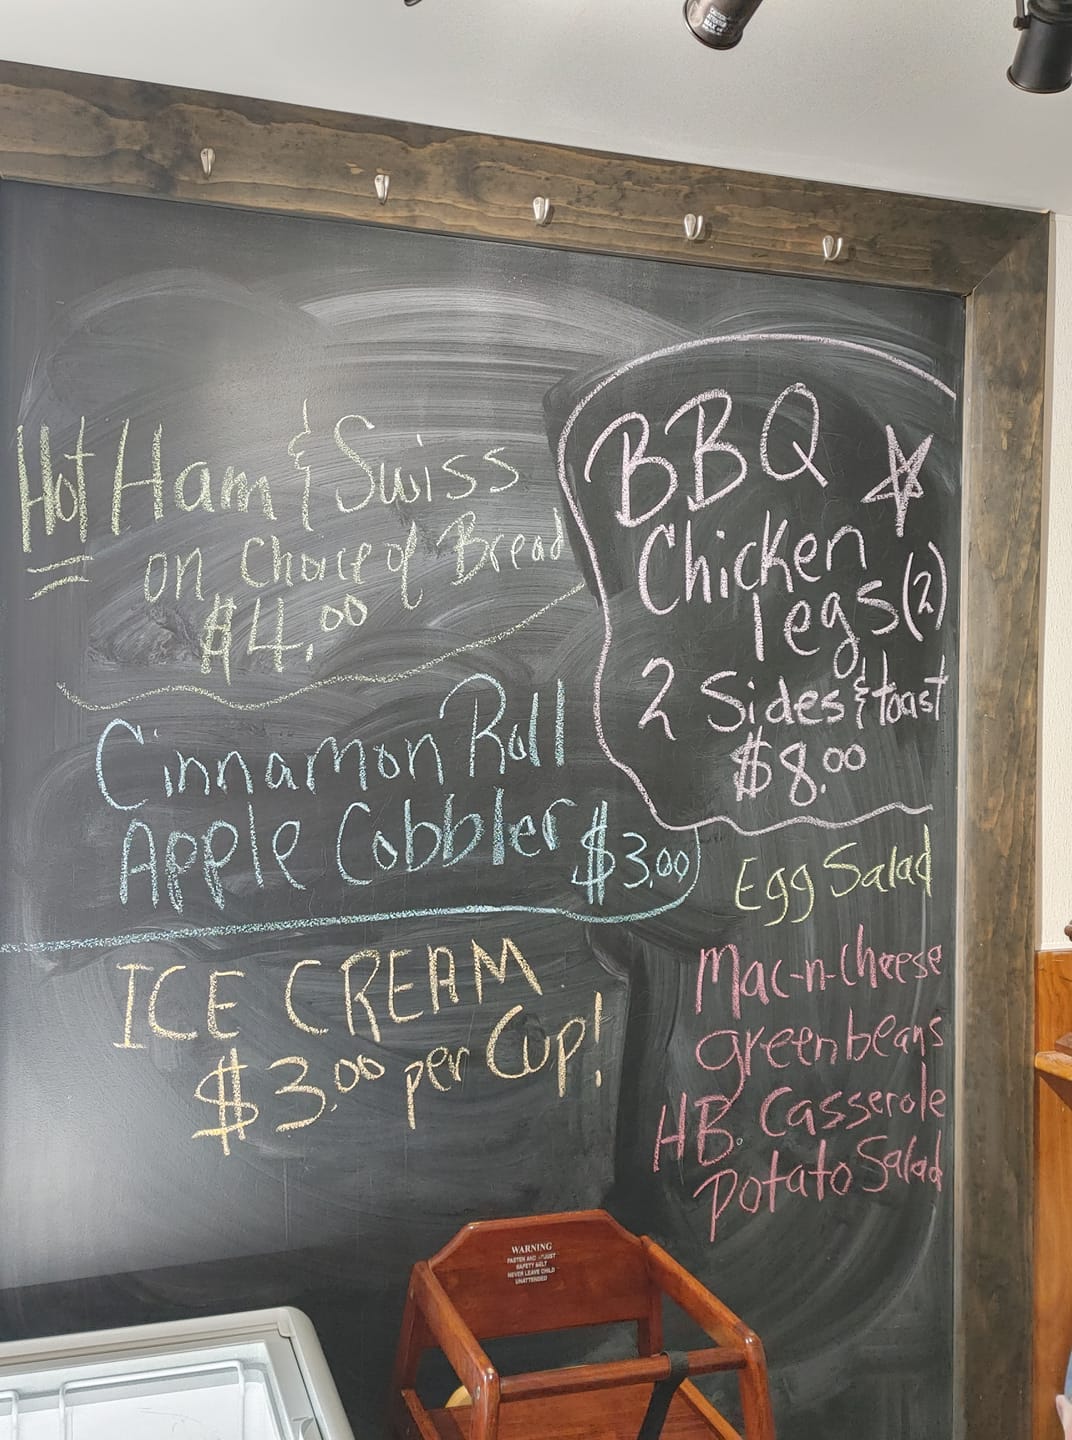 Hot Ham & Swiss
on Choice of Bread
$4.00
Cinnamon Roll
Apple Cobbler $3.00
ICE CREAM
$3.00 per Cup!
BBQ
Chicken
legs (2)
2 Sides & toast
$8.00
Egg Salad
Mac-n-cheese
green beans
HB. Casserole
Potato Salad
WARNING
FASTEN AND ADJUST
SAFETY BELT
NEVER LEAVE CHILD
UNATTENDED